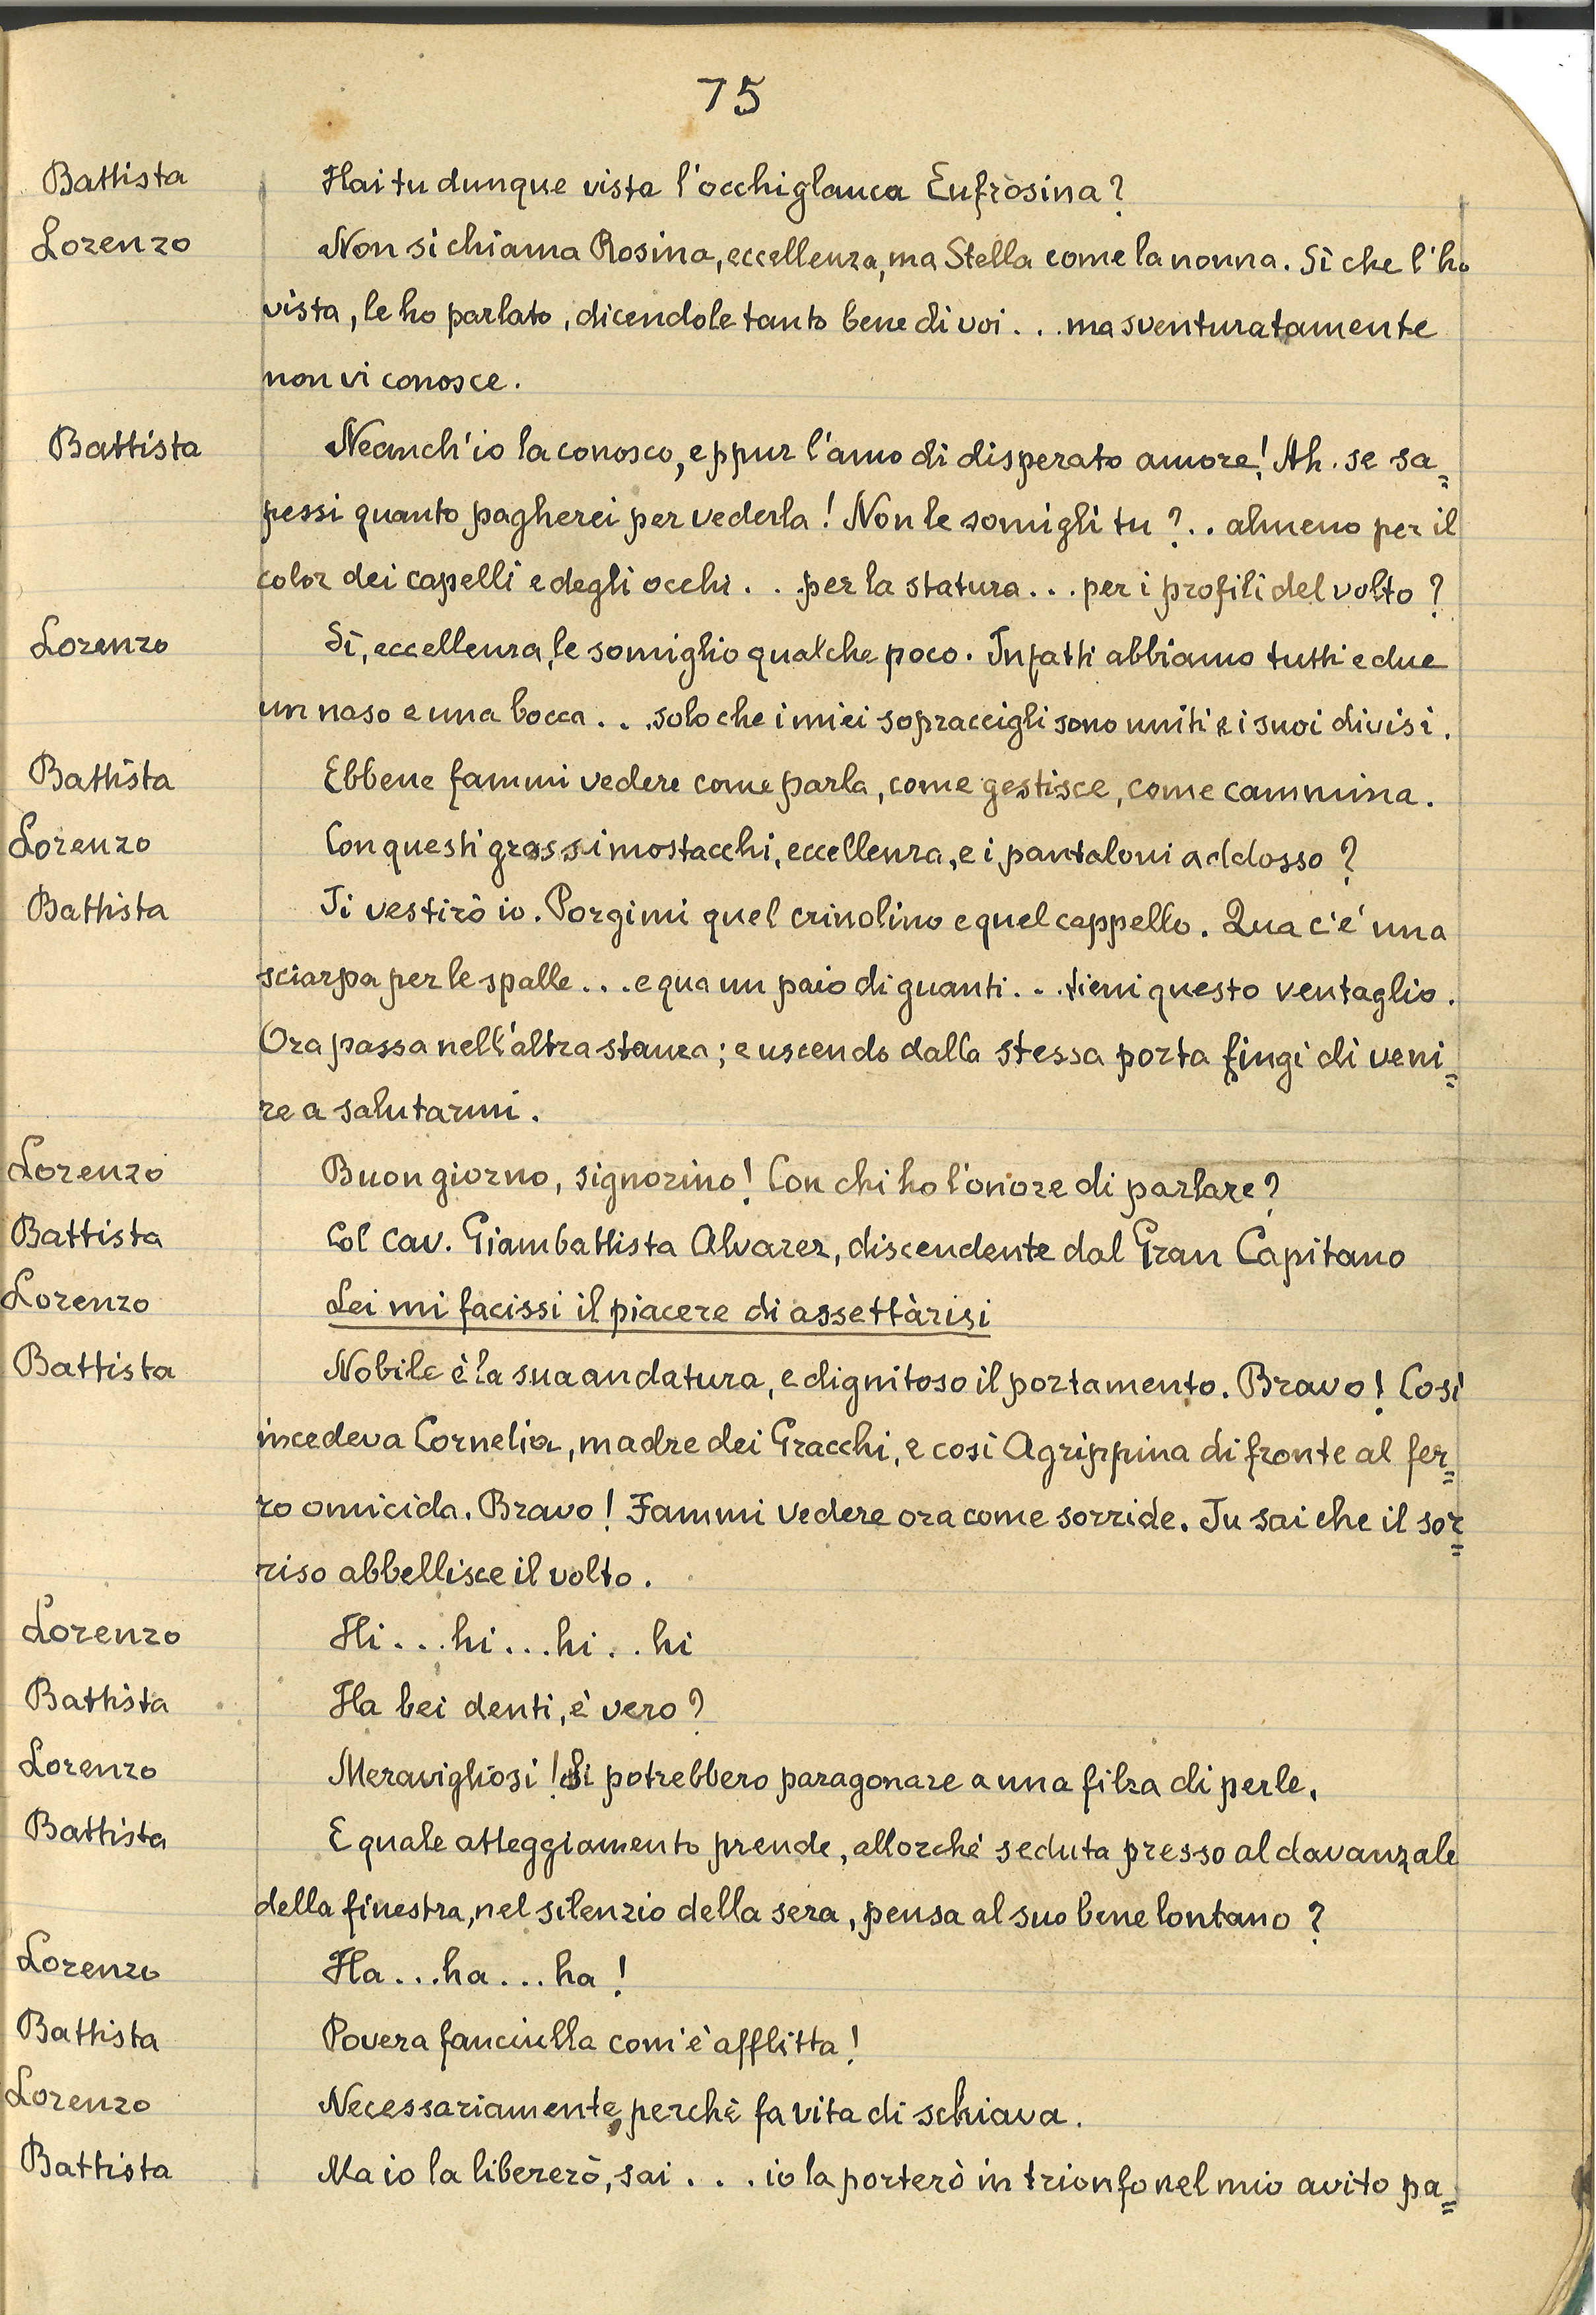 75
Battista Hai tu dunque vista l'occhiglauca Eufròsina?
Lorenzo Non si chiama Rosina, eccellenza, ma Stella come la nonna. Sì che l'ho
vista, le ho parlato, dicendole tanto bene di voi... ma sventuratamente
non vi conosce.
Battista Neanch'io la conosco, eppur l'amo di disperato amore! Ah. se sa=
pessi quanto pagherei per vederla! Non le somigli tu?.. almeno per il
color dei capelli e degli occhi... per la statura... per i profili del volto?
Lorenzo Sì, eccellenza, le somiglio qualche poco. Infatti abbiamo tutti e due
un naso e una bocca... solo che i miei sopraccigli sono uniti e i suoi divisi.
Battista Ebbene fammi vedere come parla, come gestisce, come cammina.
Lorenzo Con questi grossi mostacchi, eccellenza, e i pantaloni addosso?
Battista Ti vestirò io. Porgimi quel crinolino e quel cappello. Qua c'è una
sciarpa per le spalle... e qua un paio di guanti... tieni questo ventaglio.
Ora passa nell'altra stanza; e uscendo dalla stessa porta fingi di veni=
re a salutarmi.
Lorenzo Buon giorno, signorino! Con chi ho l'onore di parlare?
Battista Col Cav. Giambattista Alvarez, discendente dal Gran Capitano
Lorenzo Lei mi facissi il piacere di assettàrisi
Battista Nobile è la sua andatura, e dignitoso il portamento. Bravo! Così
incedeva Cornelia, madre dei Gracchi, e così Agrippina di fronte al fer=
ro omicida. Bravo! Fammi vedere ora come sorride. Tu sai che il sor=
riso abbellisce il volto.
Lorenzo Hi...hi...hi..hi
Battista Ha bei denti, è vero?
Lorenzo Meravigliosi! Si potrebbero paragonare a una filza di perle.
Battista E quale atteggiamento prende, allorchè seduta presso al davanzale
della finestra, nel silenzio della sera, pensa al suo bene lontano?
Lorenzo Ha...ha...ha!
Battista Povera fanciulla com'è afflitta!
Lorenzo Necessariamente, perchè fa vita di schiava.
Battista Ma io la libererò, sai... io la porterò in trionfo nel mio avito pa=